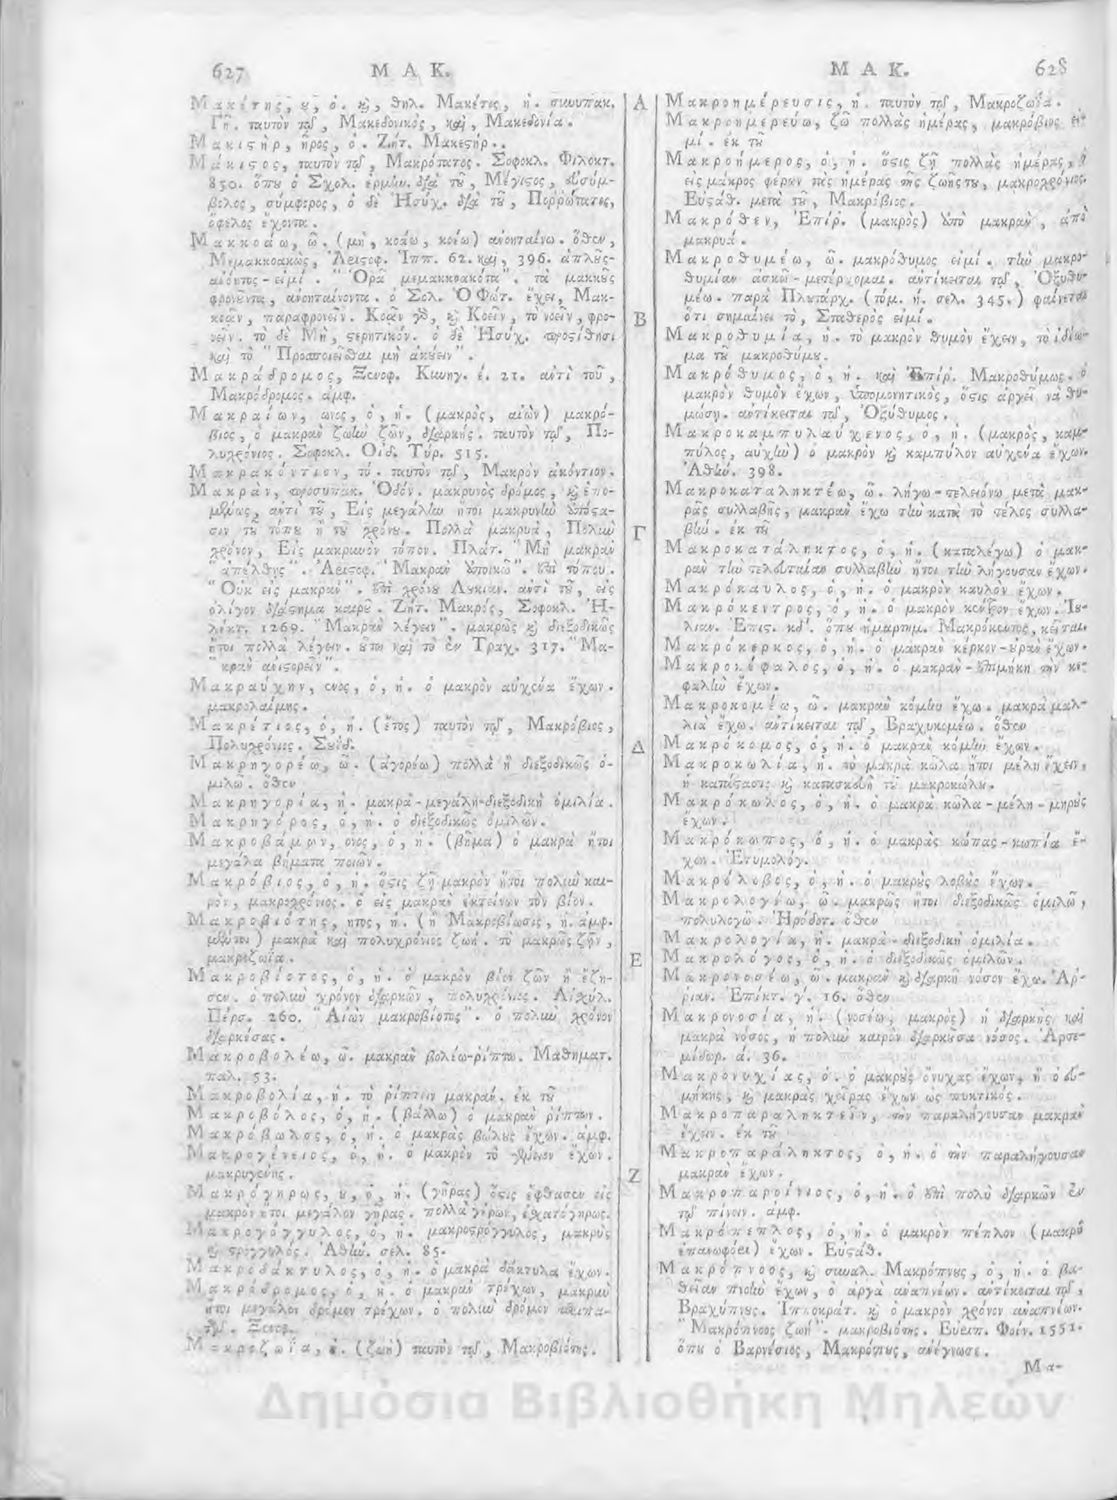 627 ΜΑΚ.
Μακέτης, ȣ, ὁ. ϗ, θηλ. Μακέτις, ἡ. συνυπακ.
Γῆ. ταυτὸν τῷ, Μακεδονικός, καὶ, Μακεδονία.
Μακιστήρ, ῆρος, ὁ. Ζήτ. Μακεστήρ..
Μάκιστος, ταυτὸν τῷ, Μακρότατος. Σοφοκλ. Φιλοκτ.
850. ὅπȣ ὁ Σχολ. ἑρμην. διὰ τȣ, Μέγιστος, εὐσύμ-
βολος, σύμφορος, ὁ δὲ Ἡσύχ. διὰ τȣ, Πορρώτατος,
ὄφελος ἔχοντα.
Μακκοάω, ῶ. (μὴ, κοάω, κοέω) ἀνοηταίνω. ὅθεν,
Μεμακκοακὼς, Ἀριστοφ. Ἱππ. 62. καὶ, 396. ἁπλȣς-
- εἰμί. "Ὁρᾷ μεμακκοακότα". τὰ μακκȣς
φρονȣντα, ἀνοηταίνοντα. ὁ Σολ. Ὁ Φώτ. ἔχει, Μακ-
κοᾷν, παραφρονεῖν. Κοᾷν γὰρ, ϗ Κοεῖν, τὸ νοεῖν, φρο-
νεῖν. τὸ δὲ Μὴ, στερητικόν. ὁ δὲ Ἡσύχ. προστίθησι
καὶ τὸ "Προσποιεῖσθαι μὴ ἀκȣειν".
Μακράδρομος, Ξενοφ. Κυνηγ. έ. 21. ἀντὶ τοῦ,
Μακρόδρομος. ἀμφ.
Μακραίων, ωνος, ὁ, ἡ. (μακρὸς, αἰών) μακρό-
βιος, ὁ μακρὰν ζωὴν ζῶν, διαρκής. ταυτὸν τῷ, Πο-
λυχρόνιος. Σοφοκλ. Οἰδ. Τύρ. 515.
Μακρακόντιον, τό. ταυτὸν τῷ, Μακρὸν ἀκόντιον.
Μακρὰν, προσυπακ. Ὁδόν. μακρυνὸς δρόμος, ϗ ἑπο-
μένως, ἀντὶ τȣ, Εἰς μεγάλην ἤτοι μακρυνὴν ἀπόστα-
σιν τȣ τόπȣ ἢ τȣ χρόνȣ. Πολλὰ μακρυὰ, Πολὺν
χρόνον, Εἰς μακρυνὸν τόπον. Πλάτ. "Μὴ μακρὰν
"ἀπέλθῃς". Ἀριστοφ. "Μακρὰν ἀποικῶ". ἐπὶ τόπου.
"Οὐκ εἰς μακρὰν". ἐπὶ χρόνȣ Λυκιαν. ἀντὶ τȣ, εἰς
ὀλίγον διάστημα καιρȣ. Ζήτ. Μακρός, Σοφοκλ. Ἠ-
λέκτ. 1269. "Μακρὰν λέγειν". μακρῶς ϗ διεξοδικῶς
ἤτοι πολλὰ λέγειν. ȣτω καὶ τὸ ἐν Τραχ. 317. "Μα-
"κρὰν ἀνιστορεῖν".
Μακραύχην, ενος, ὁ, ἡ. ὁ μακρὸν αὐχένα ἔχων.
μακρολαίμης.
Μακρέτιος, ὁ, ἡ. (ἔτος) ταυτὸν τῷ, Μακρόβιος,
Πολυχρόνιος. Σουΐδ.
Μακρηγορέω, ῶ. (ἀγορέω) πολλὰ ἢ διεξοδικῶς ὁ-
μιλῶ. ὅθεν
Μακρηγορία, ἡ. μακρὰ-μεγάλη-διεξοδικὴ ὁμιλία.
Μακρηγόρος, ὁ, ἡ. ὁ διεξοδικῶς ὁμιλῶν.
Μακροβάμων, ονος, ὁ, ἡ. (βῆμα) ὁ μακρὰ ἤτοι
μεγάλα βήματα ποιῶν.
Μακρόβιος, ὁ, ἡ. ὅστις ζῇ μακρὸν ἤτοι πολὺν και-
ρὸν, μακροχρόνιος. ὁ εἰς μακρὰν ἐκτείνων τὸν βίον.
Μακροβιότης, ητος, ἡ. (ἢ Μακροβίωσις, ἡ. ἀμφ.
μένοι) μακρὰ καὶ πολυχρόνιος ζωή. τὸ μακρῶς ζῇν,
μακροζωΐα.
Μακροβίοτος, ὁ, ἡ. ὁ μακρὸν βίον ζῶν ἢ ἔζη-
σεν. ὁ πολὺν χρόνον διαρκῶν, πολυχρόνιος. Αἰσχύλ.
Πέρσ. 260. "Αἰὼν μακροβίοτος". ὁ πολὺν χρόνον
διαρκέσας.
Μακροβολέω, ῶ. μακρὰν βολέω-ῥίπτω. Μαθηματ.
παλ. 53.
Μακροβολία, ἡ. τὸ ῥίπτειν μακράν. ἐκ τȣ
Μακροβόλος, ὁ, ἡ. (βάλλω) ὁ μακρὰν ῥίπτων.
Μακρόβωλος, ὁ, ἡ. ὁ μακρὰς βώλȣς ἔχων. ἀμφ.
Μακρογένειος, ὁ, ἡ. ὁ μακρὸν τὸ γένειον ἔχων.
μακρυγένης.
Μακρόγηρως, ω, ὁ, ἡ. (γῆρας) ὅστις ἔφθασεν εἰς
μακρὸν ἤτοι μεγάλον γῆρας. πολλὰ γέρων, ἐσχατόγηρως.
Μακρογόγγυλος, ὁ, ἡ. μακροστρόγγυλος, μακρὺς
ϗ στρογγυλός. Ἀθήν. σελ. 85.
Μακροδάκτυλος, ὁ, ἡ. ὁ μακρὰ δάκτυλα ἔχων.
Μακροδρόμος, ὁ, ἡ. ὁ μακρὰν τρέχων, μακρὺν
ἤτοι μεγάλον δρόμον τρέχων. ὁ πολὺν δρόμον περιπα-
τῶν. Ξενοφ.
Μακροζωΐα, ἡ. (ζωὴ) ταυτὸν τῷ, Μακροβιότης.
Α
Β
Γ
Δ
Ε
Ζ
ΜΑΚ. 628
Μακροημέρευσις, ἡ. ταυτὸν τῷ, Μακροζωΐα.
Μακροημερεύω, ζῶ πολλὰς ἡμέρας, μακρόβιος εἰ-
μί. ἐκ τȣ
Μακροήμερος, ὁ, ἡ. ὅστις ζῇ πολλὰς ἡμέρας, ἢ
εἰς μάκρος φέρων τὰς ἡμέρας τῆς ζωῆς τȣ, μακροχρόνιος.
Εὐστάθ. μετὰ τȣ, Μακρόβιος.
Μακρόθεν, Ἐπίρ. (μακρὸς) ἀπὸ μακρὰν, ἀπὸ
μακρυά.
Μακροθυμέω, ῶ. μακρόθυμος εἰμί. τὴν μακρο-
θυμίαν ἀσκῶ-μετέρχομαι. ἀντίκειται τῷ, Ὀξυθυ-
μέω. παρὰ Πλυτάρχ. (τόμ. ή. σελ. 345.) φαίνεται
ὅτι σημαίνει τὸ, Σταθερὸς εἰμί.
Μακροθυμία, ἡ. τὸ μακρὸν θυμὸν ἔχειν, τὸ ἰδίω-
μα τȣ μακροθύμȣ.
Μακρόθυμος, ὁ, ἡ. καὶ Ἐπίρ. Μακροθύμως. ὁ
μακρὸν θυμὸν ἔχων, ὑπομονητικὸς, ὅστις ἀργεῖ νὰ θυ-
μώσῃ. ἀντίκειται τῷ, Ὀξύθυμος.
Μακροκαμπυλαύχενος, ὁ, ἡ. (μακρὸς, καμ-
πύλος, αὐχὴν) ὁ μακρὸν ϗ καμπύλον αὐχένα ἔχων.
Ἀθήν. 398.
Μακροκαταληκτέω, ῶ. λήγω-τελειόνω μετὰ μακ-
ρᾶς συλλαβῆς, μακρὰν ἔχω τὴν κατὰ τὸ τέλος συλλα-
βήν. ἐκ τȣ
Μακροκατάληκτος, ὁ, ἡ. (καταλέγω) ὁ μακ-
ρὰν τὴν τελευταίαν συλλαβὴν ἤτοι τὴν λήγουσαν ἔχων.
Μακρόκαυλος, ὁ, ἡ. ὁ μακρὸν καυλὸν ἔχων.
Μακρόκεντρος, ὁ, ἡ. ὁ μακρὸν κέντρον ἔχων. Ἰȣ-
λιαν. Ἐπιστ. κδ'. ὅπȣ ἡμαρτημ. Μακρόκεντος, κεῖται.
Μακρόκερκος, ὁ, ἡ. ὁ μακρὰν κέρκον-ȣρὰν ἔχων.
Μακροκέφαλος, ὁ, ἡ. ὁ μακρὰν-ἐπιμήκη τὴν κε-
φαλὴν ἔχων.
Μακροκομέω, ῶ. μακρὰν κόμην ἔχω. μακρὰ μαλ-
λιὰ ἔχω. ἀντίκειται τῷ, Βραχυκομέω. ὅθεν
Μακρόκομος, ὁ, ἡ. ὁ μακρὰν κόμην ἔχων.
Μακροκωλία, ἡ. τὸ μακρὰ κῶλα ἤτοι μέλη ἔχειν,
ἡ κατάστασις ϗ κατασκευὴ τȣ μακροκώλȣ.
Μακρόκωλος, ὁ, ἡ. ὁ μακρὰ κῶλα-μέλη-μηρȣς
ἔχων.
Μακρόκωπος, ὁ, ἡ. ὁ μακρὰς κώπας-κωπία ἔ-
χων. Ἐτυμολόγ.
Μακρόλοβος, ὁ, ἡ. ὁ μακρȣς λοβȣς ἔχων.
Μακρολογέω, ῶ. μακρῶς ἤτοι διεξοδικῶς ὁμιλῶ,
πολυλογῶ. Ἡρόδοτ. ὅθεν
Μακρολογία, ἡ. μακρὰ-διεξοδικὴ ὁμιλία.
Μακρολόγος, ὁ, ἡ. ὁ διεξοδικῶς ὁμιλῶν.
Μακρονοσέω, ῶ. μακρὰν ϗ διαρκῆ νόσον ἔχω. Ἀρ-
ριαν. Ἐπίκτ. γ'. 16. ὅθεν
Μακρονοσία, ἡ. (νοσέω, μακρὸς) ἡ διαρκὴς καὶ
μακρὰ νόσος, ἡ πολὺν καιρὸν διαρκȣσα νόσος. Ἀρτε-
μίδωρ. ά. 36.
Μακρονυχίας, ὁ. ὁ μακρȣς ὄνυχας ἔχων, ἢ ὁ εὐ-
μήκης, ϗ μακρὰς χεῖρας ἔχων ὡς πυκτικός.
Μακροπαραληκτεῖν, τὴν παραλήγουσαν μακρὰν
ἔχειν. ἐκ τȣ
Μακροπαράληκτος, ὁ, ἡ. ὁ τὴν παραλήγουσαν
μακρὰν ἔχων.
Μακροπαροίνιος, ὁ, ἡ. ὁ ἐπὶ πολὺ διαρκῶν ἐν
τῷ πίνειν. ἀμφ.
Μακρόπεπλος, ὁ, ἡ. ὁ μακρὸν πέπλον (μακρὸ
ἐπανωφόρι) ἔχων. Εὐστάθ.
Μακρόπνοος, ϗ συναλ. Μακρόπνȣς, ὁ, ἡ. ὁ βα-
θεῖαν πνοὴν ἔχων, ὁ ἀργὰ ἀναπνέων. ἀντίκειται τῷ,
Βραχύπνȣς. Ἱπποκράτ. ϗ ὁ μακρὸν χρόνον ἀναπνέων.
"Μακρόπνοος ζωή". μακροβιότης. Εὐριπ. Φοίν. 1551.
ὅπȣ ὁ Βαρνέσιος, Μακρόπȣς, ἀνέγνωσε.
Μα-
Δημόσια Βιβλιοθήκη Μηλεών